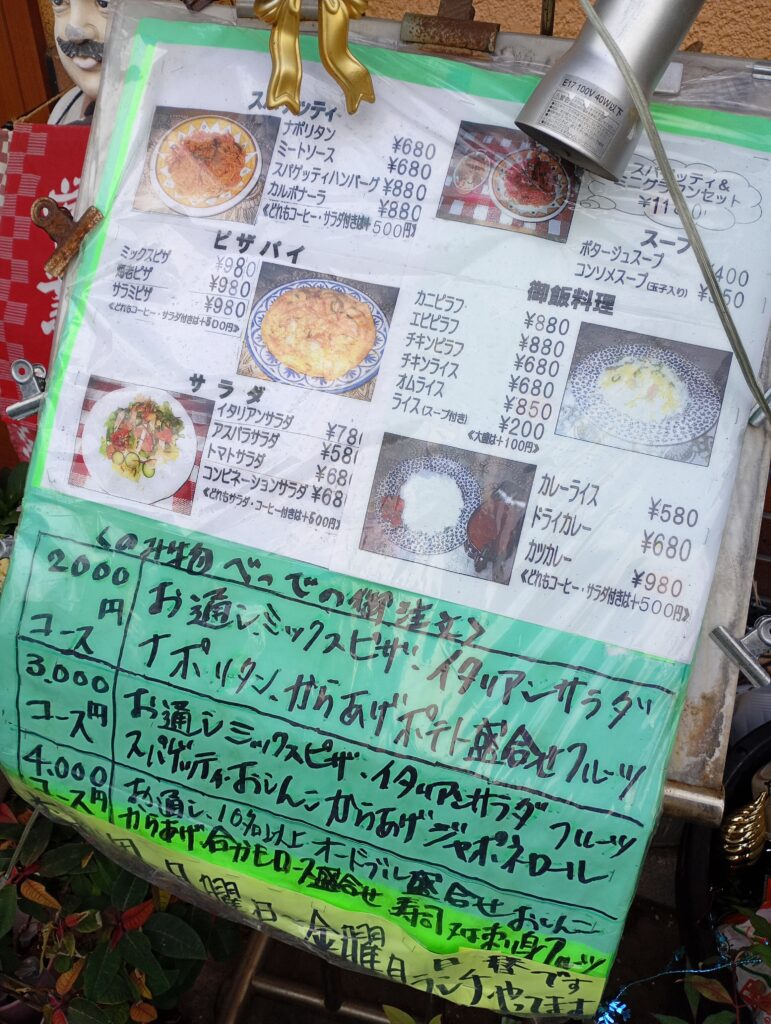 E17 100V 40W以下
スパゲッティ
ナポリタン ¥680
ミートソース ¥680
スパゲッティハンバーグ ¥880
カルボナーラ ¥880
《どれもコーヒー・サラダ付きは+500円》
スパゲッティ&
ミニグラタンセット
スープ
ポタージュスープ 400
コンソメスープ(玉子入り)
ピザパイ
ミックスピザ ¥980
ピザ ¥980
サラミピザ ¥980
《どれもコーヒー・サラダ付きは+500円》
御飯料理
カニピラフ ¥880
エビピラフ ¥880
チキンピラフ ¥680
チキンライス ¥680
オムライス ¥850
ライス(スープ付き) ¥200
《大盛は+100円》
サラダ
イタリアンサラダ ¥78
アスパラサラダ ¥58
トマトサラダ ¥68
コンビネーションサラダ ¥68
《どれもサラダ・コーヒー付きは+500円》
カレーライス ¥580
ドライカレー ¥680
カツカレー ¥980
《どれもコーヒー・サラダ付きは+500円》
<のみ物べつでの御注文>
2000円コース
お通しミックスピザ、イタリアンサラダ
ナポリタン、からあげポテト盛合せフルーツ
3.000円コース
お通しミックスピザ、イタリアンサラダ フルーツ
スパゲッティおしんこからあげジャポネロール
4.000円コース
お通し、10名以上オードブル盛合せおしんこ
からあげ 盛合せ 寿司 刺身フルーツ
月曜日 金曜日
ランチやってます